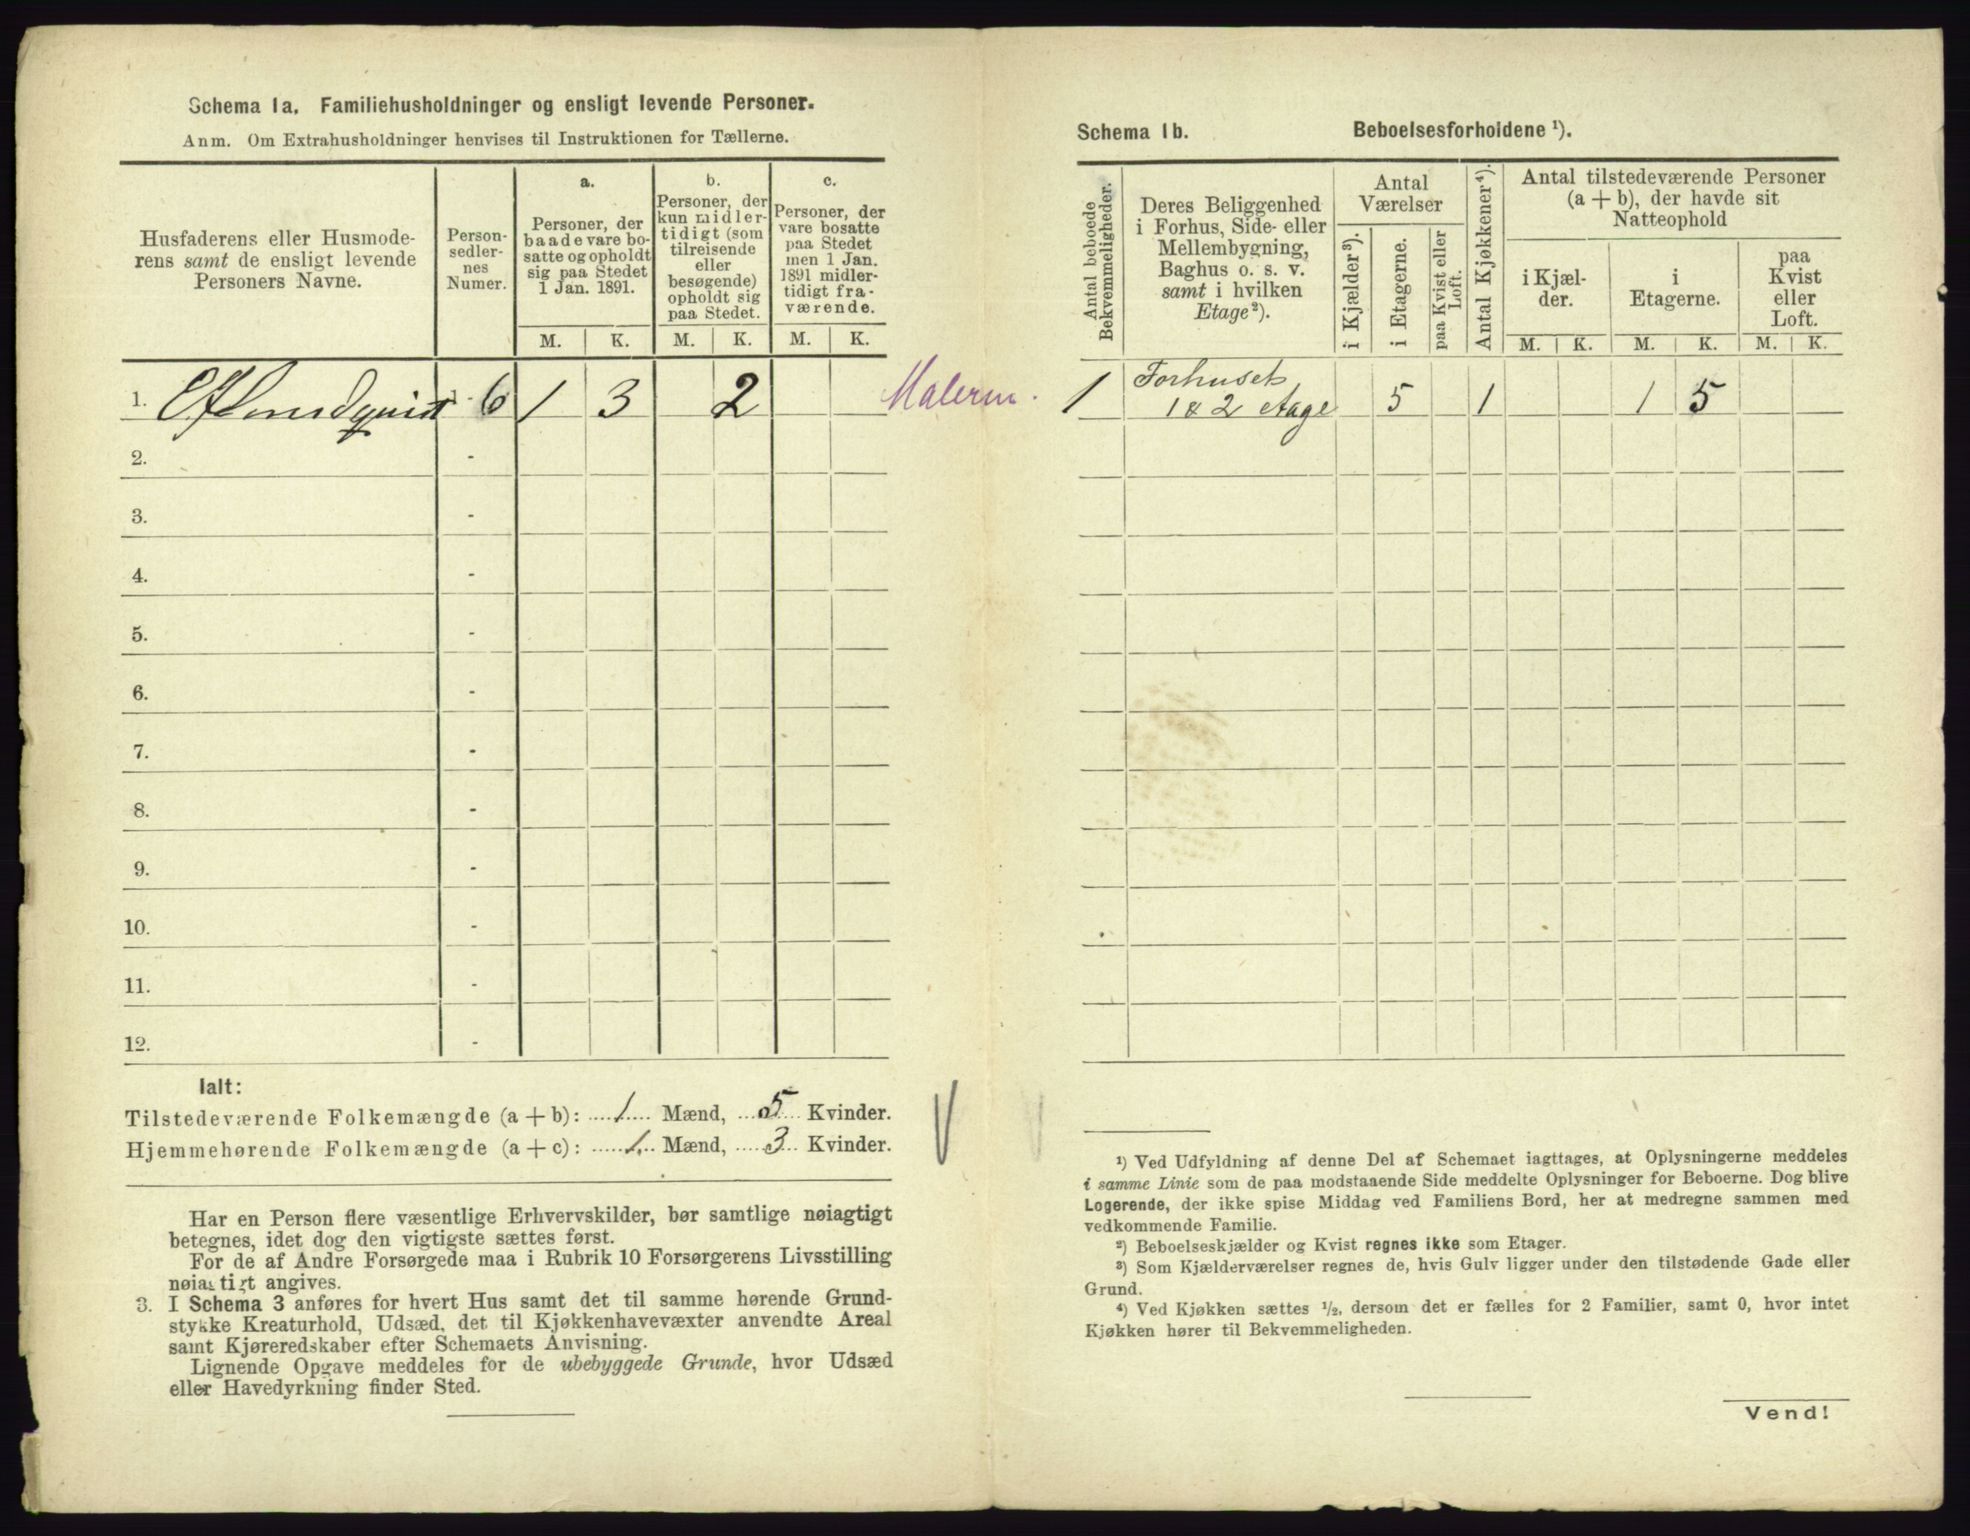 Schema 1a. Familiehusholdninger og ensligt levende Personer.
Anm. Om Extrahusholdninger henvises til Instruktionen for Tællerne.
Husfaderens eller Husmode-
rens samt de ensligt levende
Personers Navne.
Person-
sedler-
nes
Numer.
a.
Personer, der
baade vare bo-
satte og opholdt
sig paa Stedet
1 Jan. 1891.
b.
Personer, der
kun midler-
tidigt (som
tilreisende
eller
besøgende)
opholdt sig
paa Stedet.
c.
Personer, der
vare bosatte
paa Stedet
men 1 Jan.
1891 midler-
tidigt fra-
værende.
M. K. M. K. M. K.
1. 1 - 6 1 3 2
2. -
3. -
4. -
5. -
6. -
7. -
8. -
9. -
10. -
11. -
12. -
Ialt:
Tilstedeværende Folkemængde (a + b): 1 Mænd, 5 Kvinder.
Hjemmehørende Folkemængde (a + c): 1 Mænd, 3 Kvinder.
Har en Person flere væsentlige Erhvervskilder, bør samtlige nøiagtigt
betegnes, idet dog den vigtigste sættes først.
For de af Andre Forsørgede maa i Rubrik 10 Forsørgerens Livsstilling
nøiagtigt angives.
3. I Schema 3 anføres for hvert Hus samt det til samme hørende Grund-
stykke Kreaturhold, Udsæd, det til Kjøkkenhavevæxter anvendte Areal
samt Kjøreredskaber efter Schemaets Anvisning.
Lignende Opgave meddeles for de ubebyggede Grunde, hvor Udsæd
eller Havedyrkning finder Sted.
Schema 1b. Beboelsesforholdene ¹).
Antal beboede
Bekvemmeligheder.
Deres Beliggenhed
i Forhus, Side- eller
Mellembygning,
Baghus o. s. v.
samt i hvilken
Etage²).
Antal
Værelser
i Kjælder³).
i Etagerne.
paa Kvist eller
Loft.
Antal Kjøkkener⁴).
Antal tilstedeværende Personer
(a + b), der havde sit
Natteophold
i Kjæl-
der.
i
Etagerne.
paa
Kvist
eller
Loft.
M. K. M. K. M. K.
1 Forhusets
1 & 2 etage 5 1 1 5
¹) Ved Udfyldning af denne Del af Schemaet iagttages, at Oplysningerne meddeles
i samme Linie som de paa modstaaende Side meddelte Oplysninger for Beboerne. Dog blive
Logerende, der ikke spise Middag ved Familiens Bord, her at medregne sammen med
vedkommende Familie.
²) Beboelseskjælder og Kvist regnes ikke som Etager.
³) Som Kjælderværelser regnes de, hvis Gulv ligger under den tilstødende Gade eller
Grund.
⁴) Ved Kjøkken sættes ½, dersom det er fælles for 2 Familier, samt 0, hvor intet
Kjøkken hører til Bekvemmeligheden.
Vend!